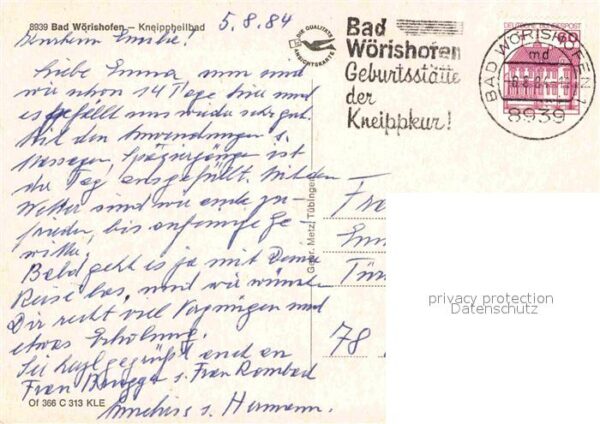 8939 Bad Wörishofen – Kneippheilbad
5.8.84
DIE QUALITÄTS
ANSICHTSKARTE
Bad
Wörishofen
Geburtsstätte
der
Kneippkur!
DEUTSCHE BUNDESPOST
60
BAD WÖRISHOFEN 1
md
8939
Liebe Emma, nun sind
wir schon 14 Tage hier und
es gefällt uns wieder sehr gut.
Mit den Anwendungen u.
Massagen, Spaziergänge ist
der Tag ausgefüllt. Mit dem
Wetter sind wir auch zu-
frieden, bis auf einige Ge-
witter.
Bald geht es ja mit Deiner
Reise los, und wir wünschen
Dir recht viel Vergnügen und
etwas Erholung.
Sei herzl. gegrüßt auch an
Frau u. Frau
u. Hermann.
Gebr. Metz, Tübingen
78
Of 366 C 313 KLE
privacy protection
Datenschutz